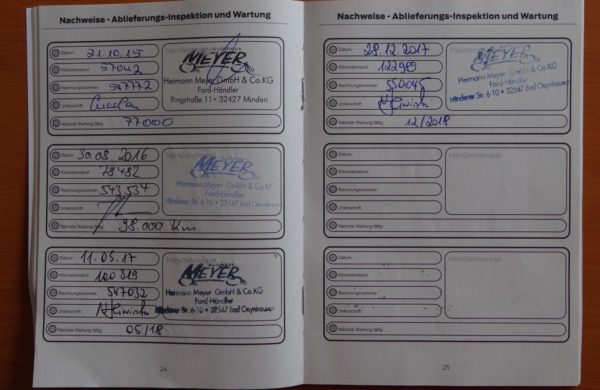 Nachweise - Ablieferungs-Inspektion und Wartung
Datum: 21.10.15
Kilometerstand: 57042
Rechnungsnummer: 547772
Unterschrift:
Nächste Wartung fällig: 77000
Autohaus
MEYER
Hermann Meyer GmbH & Co.KG
Ford-Händler
Ringstraße 11 • 32427 Minden
Datum: 30.08.2016
Kilometerstand: 78482
Rechnungsnummer: 543534
Unterschrift:
Nächste Wartung fällig: 98.000 Km
MEYER
Hermann Meyer GmbH & Co.KG
Ford-Händler
Mindener Str. 6-10 • 32547 Bad Oeynhausen
Datum: 11.05.17
Kilometerstand:
Rechnungsnummer: 547032
Unterschrift:
Nächste Wartung fällig: 05/18
MEYER
Hermann Meyer GmbH & Co.KG
Ford-Händler
Mindener Str. 6-10 • 32547 Bad Oeynhausen
24
Nachweise - Ablieferungs-Inspektion und Wartung
Datum: 28.12.2017
Kilometerstand:
Rechnungsnummer: 550045
Unterschrift:
Nächste Wartung fällig: 12/2018
MEYER
Hermann Meyer GmbH & Co.KG
Ford-Händler
Mindener Str. 6-10 • 32547 Bad Oeynhausen
Datum:
Kilometerstand:
Rechnungsnummer:
Unterschrift:
Nächste Wartung fällig:
Händlerstempel
Datum:
Kilometerstand:
Rechnungsnummer:
Unterschrift:
Nächste Wartung fällig:
Händlerstempel
25